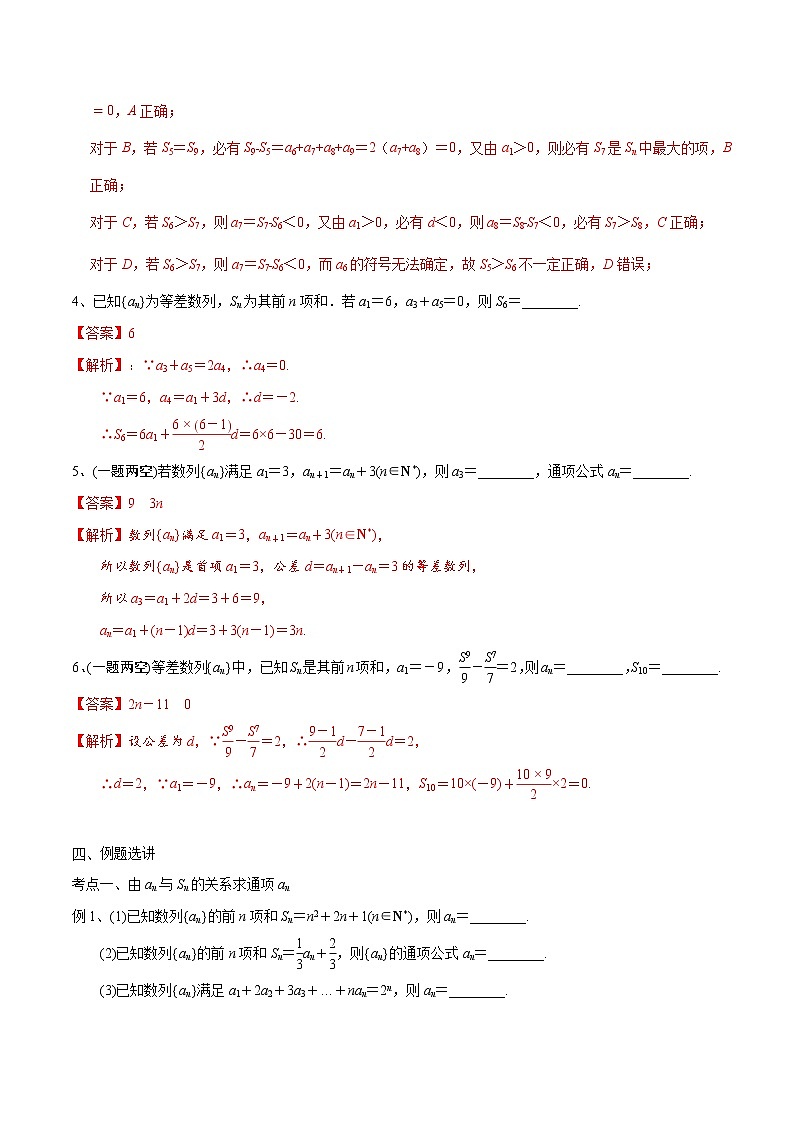 ＝0，A 正确；
对于 B，若 S5＝S9，必有 S9-S5＝a6+a7+a8+a9＝2（a7+a8）＝0，又由 a1＞0，则必有 S7 是 Sn 中最大的项，B
正确；
对于 C，若 S6＞S7，则 a7＝S7-S6＜0，又由 a1＞0，必有 d＜0，则 a8＝S8-S7＜0，必有 S7＞S8，C 正确；
对于 D，若 S6＞S7，则 a7＝S7-S6＜0，而 a6 的符号无法确定，故 S5＞S6 不一定正确，D 错误；
4、已知{an}为等差数列，Sn为其前 n 项和．若 a1＝6，a3＋a5＝0，则 S6＝________.
【答案】6
【解析】：∵a3＋a5＝2a4，∴a4＝0.
∵a1＝6，a4＝a1＋3d，∴d＝－2.
∴S6＝6a1＋6×(6－1)/2d＝6×6－30＝6.
5、(一题两空)若数列{an}满足 a1＝3，an＋1＝an＋3(n∈N*)，则 a3＝________，通项公式 an＝________.
【答案】9 3n
【解析】数列{an}满足 a1＝3，an＋1＝an＋3(n∈N*)，
所以数列{an}是首项 a1＝3，公差 d＝an＋1－an＝3 的等差数列，
所以 a3＝a1＋2d＝3＋6＝9，
an＝a1＋(n－1)d＝3＋3(n－1)＝3n.
6、(一题两空)等差数列{an}中，已知 Sn是其前 n 项和，a1＝－9，S9/9－S7/7＝2，则 an＝________，S10＝________.
【答案】2n－11 0
【解析】设公差为 d，∵S9/9－S7/7＝2，∴9－1/2d－7－1/2d＝2，
∴d＝2，∵a1＝－9，∴an＝－9＋2(n－1)＝2n－11，S10＝10×(－9)＋10×9/2×2＝0.
四、例题选讲
考点一、由 an与 Sn的关系求通项 an
例 1、(1)已知数列{an}的前 n 项和 Sn＝n²＋2n＋1(n∈N*)，则 an＝________.
(2)已知数列{an}的前 n 项和 Sn＝1/3an＋2/3，则{an}的通项公式 an＝________.
(3)已知数列{an}满足 a1＋2a2＋3a3＋…＋nan＝2ⁿ，则 an＝________.